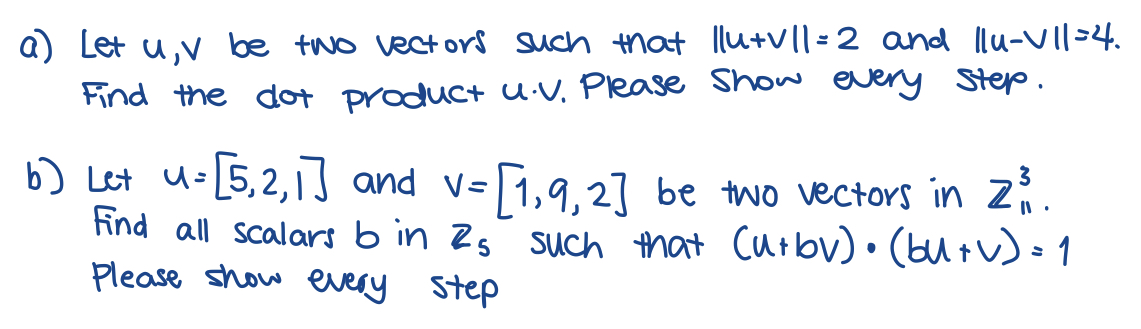 a) Let u,v be two vectors such that ||u+v||=2 and ||u-v||=4.
Find the dot product u·v. Please Show every step.
b) Let u=[5,2,1] and v=[1,9,2] be two vectors in ℤ³₁₁.
Find all scalars b in ℤ₅ such that (u+bv)•(bu+v)=1
Please show every step